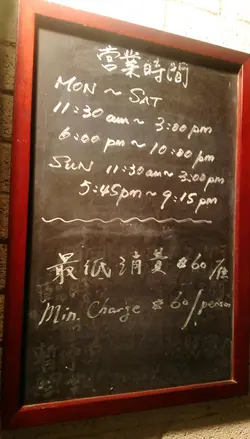 營業時間
MON ~ SAT
11:30 am ~ 3:00 pm
6:00 pm ~ 10:00 pm
SUN 11:30 am ~ 3:00 pm
5:45 pm ~ 9:15 pm
最低消費 $60/位
Min. Charge $60/person